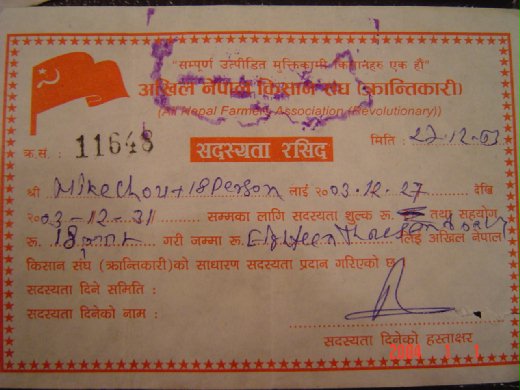 "सम्पूर्ण उत्पीडित मुक्तिकामी किसानहरु एक हौं"
अखिल नेपाल किसान संघ (क्रान्तिकारी)
(All Nepal Farmers Association (Revolutionary))
क्र.सं. : 11648 मिति : 27-12-03
सदस्यता रसिद
श्री Mike Chou + 18 Person लाई २०03.12.27 देखि
२०03-12-31 सम्मका लागि सदस्यता शुल्क रु. तथा सहयोग
रु. गरी जम्मा रु. Eighteen Thousand only लाई अखिल नेपाल
किसान संघ (क्रान्तिकारी)को साधारण सदस्यता प्रदान गरिएको छ
सदस्यता दिने समिति :
सदस्यता दिनेको नाम :
सदस्यता दिनेको हस्ताक्षर